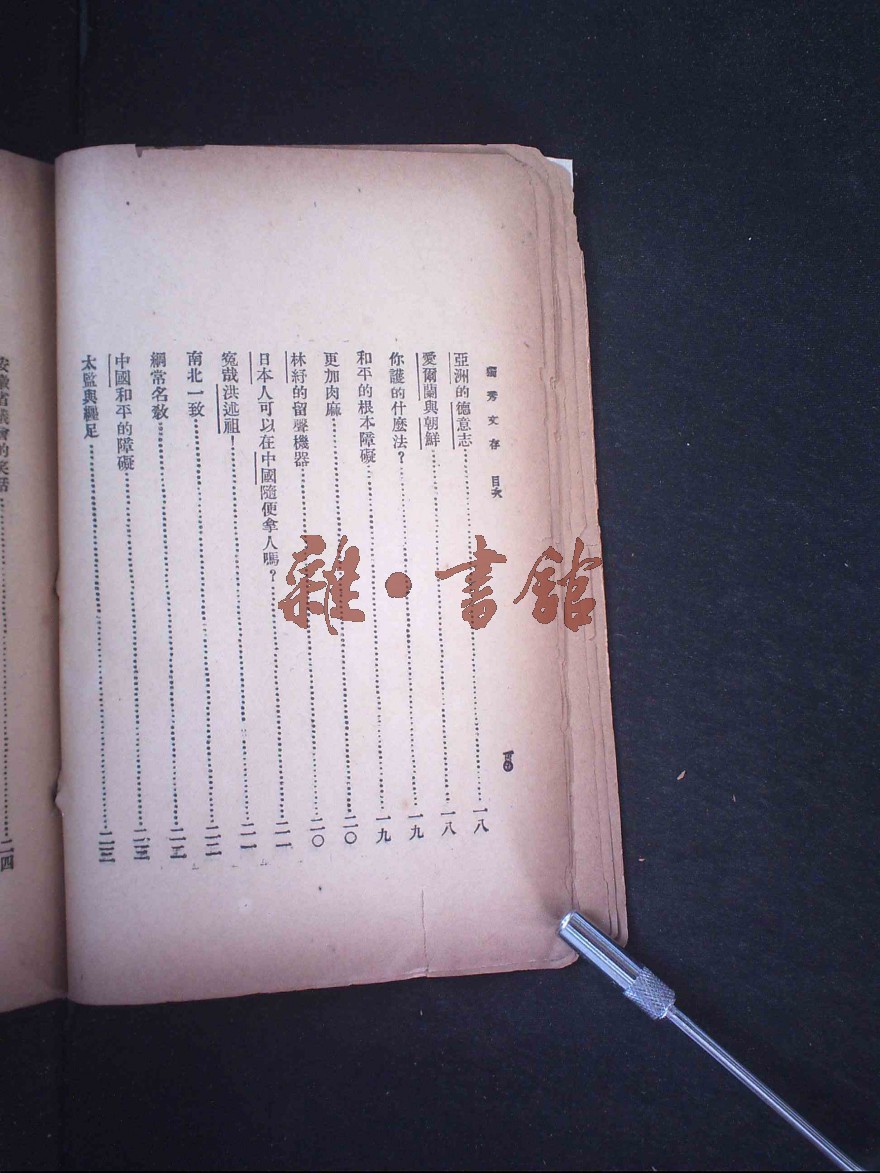 獨秀文存 目次
亞洲的德意志……一八
愛爾蘭與朝鮮……一八
你護的什麼法？……一九
和平的根本障礙……一九
更加肉麻……二〇
林紓的留聲機器……二〇
日本人可以在中國隨便拿人嗎？……二一
冤哉洪述祖！……二一
南北一致……二二
綱常名教……二二
中國和平的障礙……二三
太監與纏足……二三
安徽省議會的笑話……二四
雜·書館